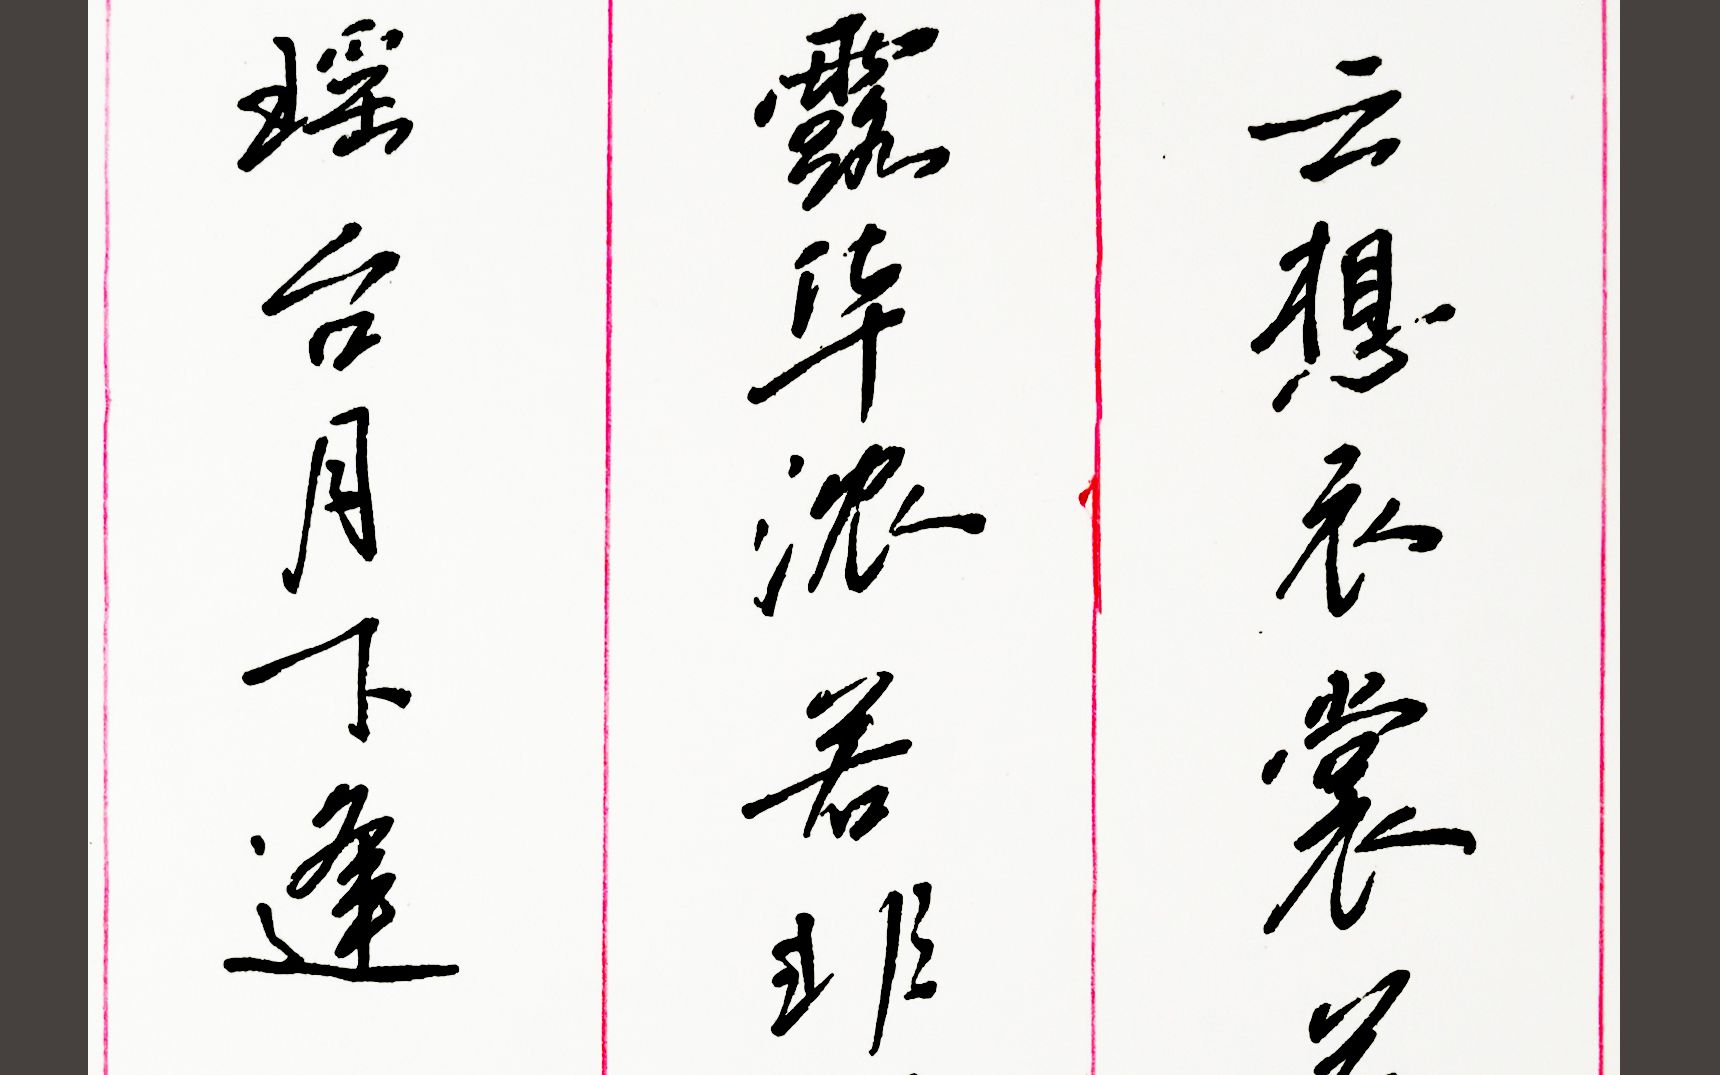 云想衣裳
露华浓若非
瑶台月下逢